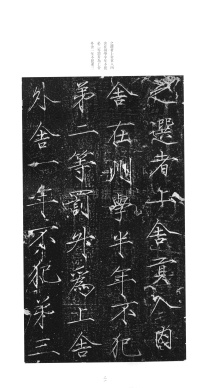 之選者上舍貢入內
舍在州學半年不犯
第二等罰外爲上舍
外舍一年不犯第三